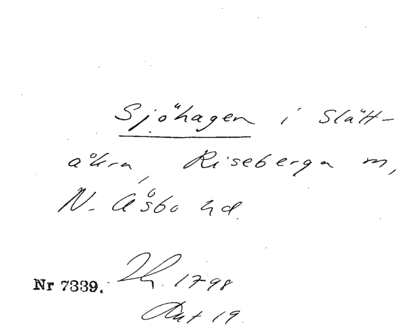 Sjöhagen i Slätt-
åkra, Riseberga sn,
N. Åsbo hd.
Nr 7339. Zh. 1798
Akt 19.